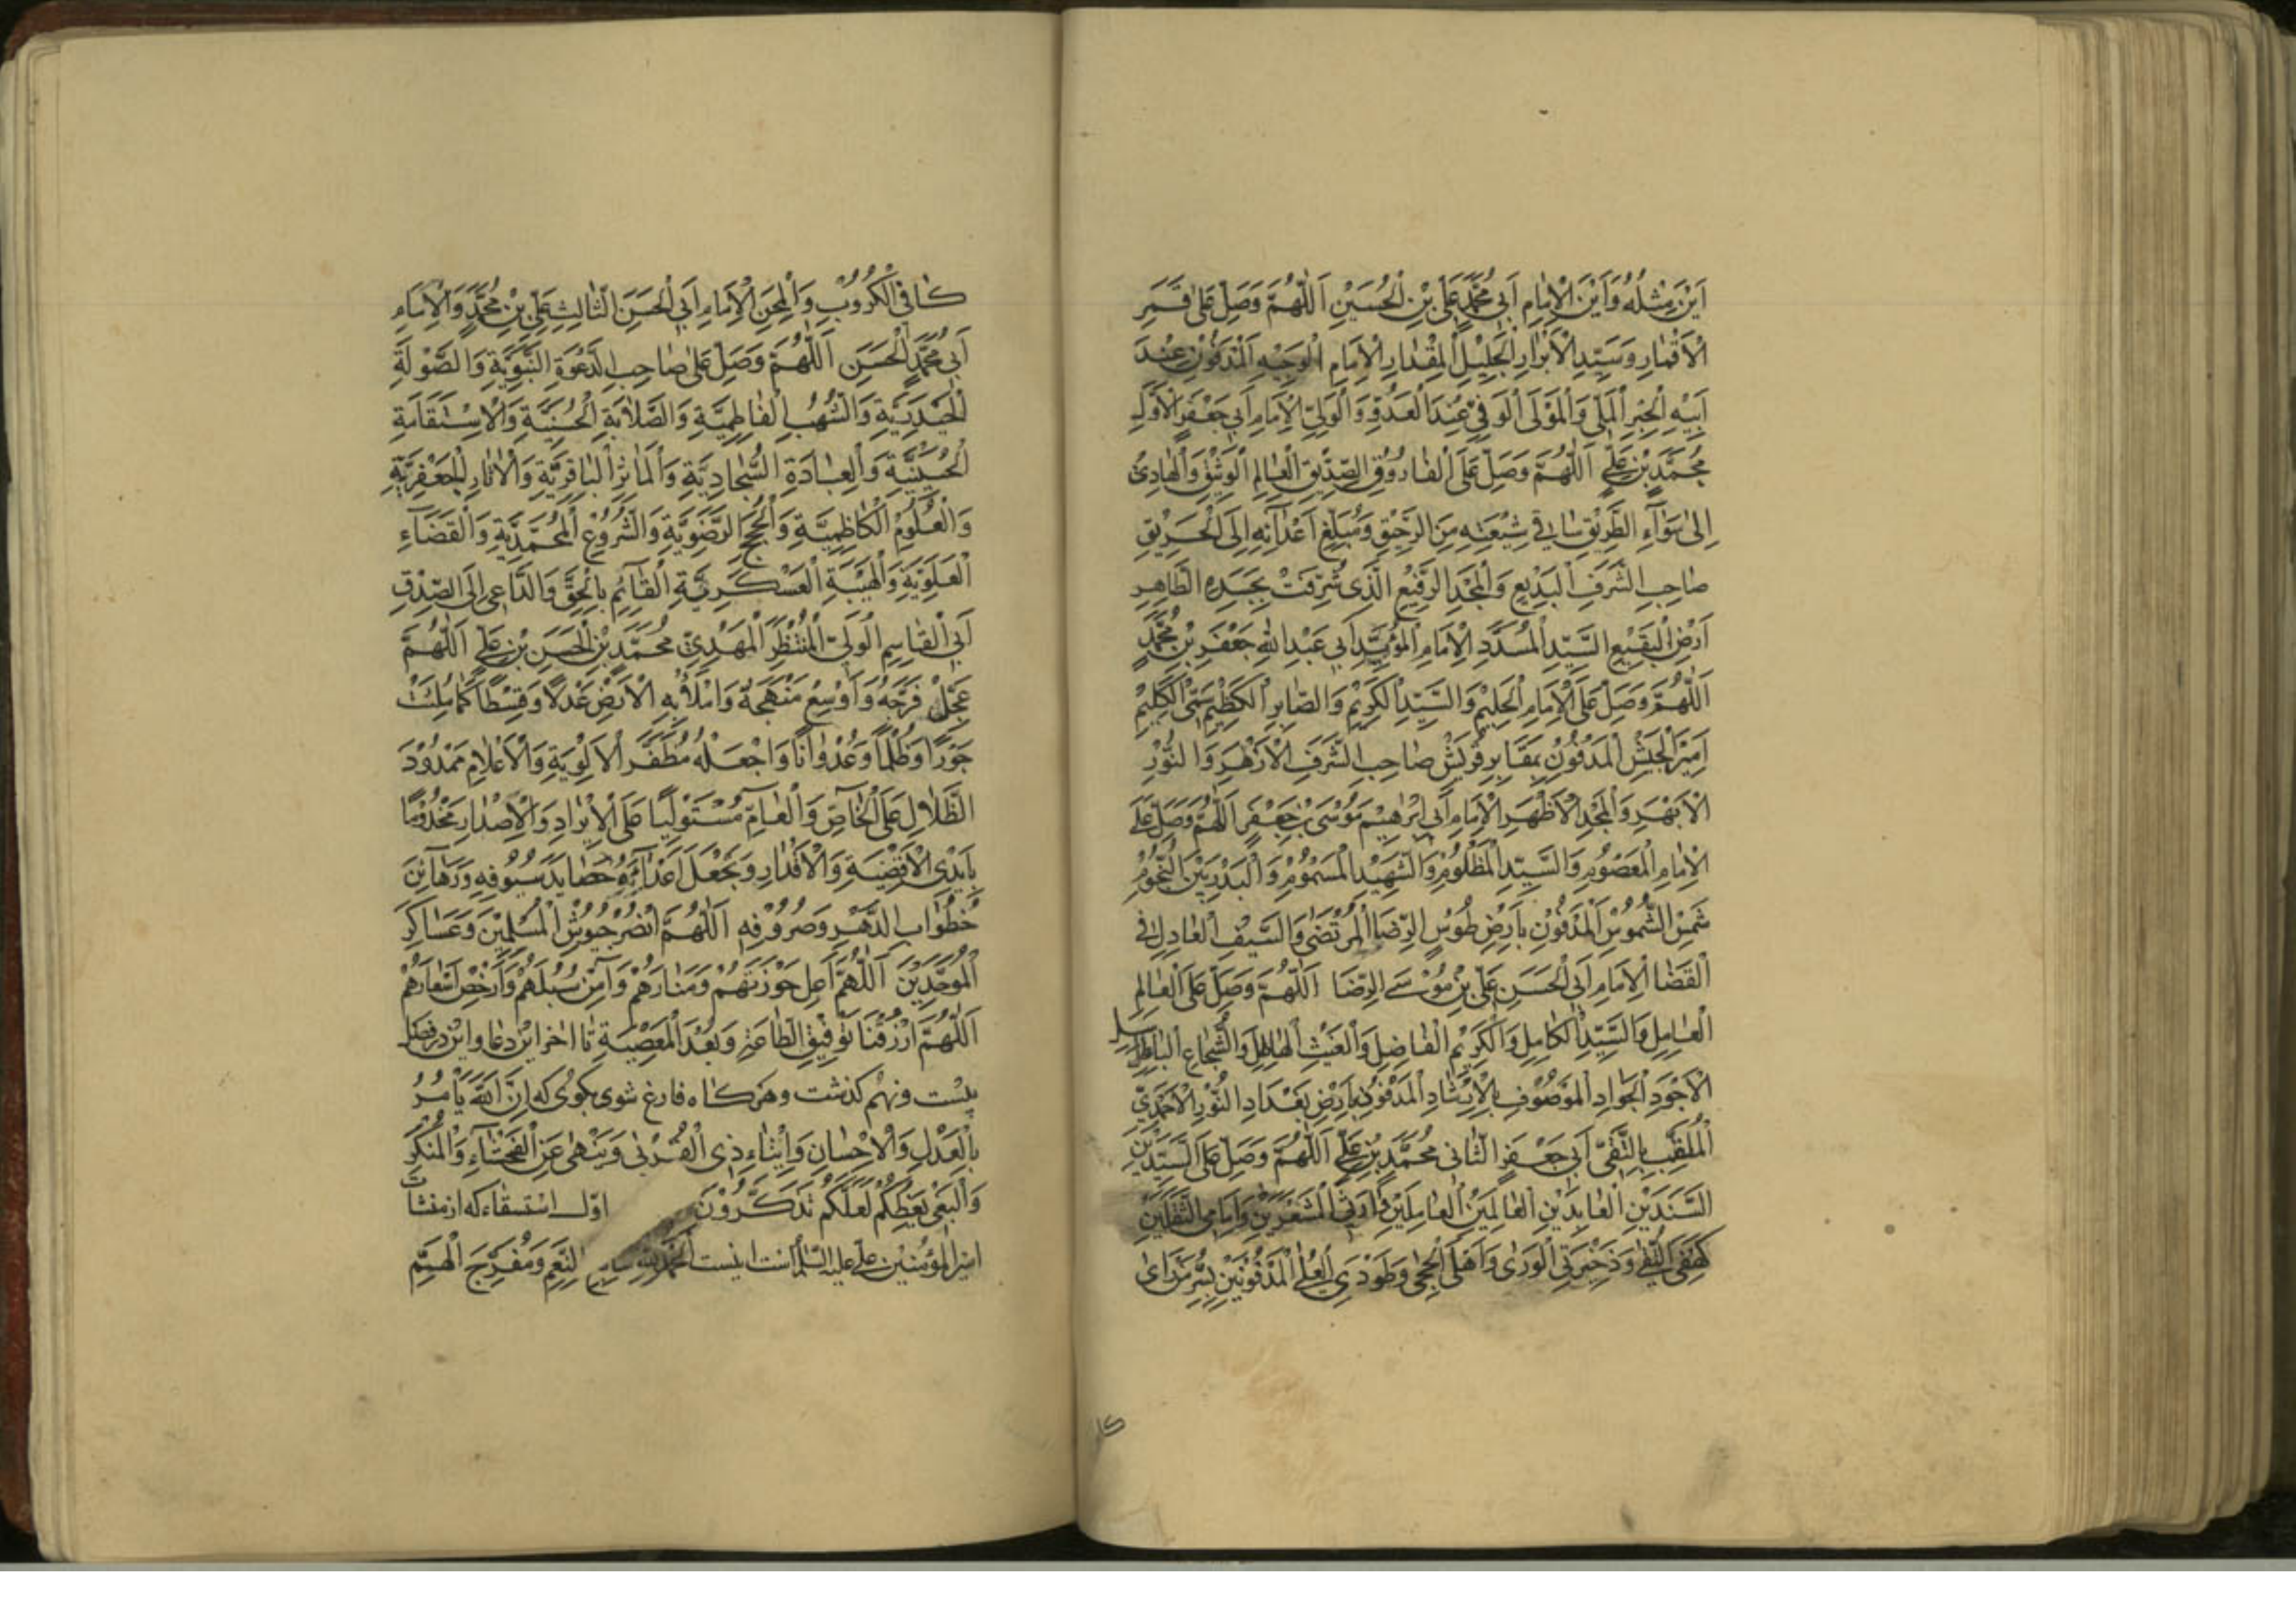 اَيْنَ مِثْلُهُ وَاَيْنَ الْاِمَامِ اَبِى مُحَمَّدٍ عَلِىِّ بْنِ الْحُسَيْنِ اَللّٰهُمَّ وَصَلِّ عَلىٰ قَمَرِ
الْاَقْمَارِ وَسَيِّدِ الْاَبْرَارِ الْجَلِيْلِ الْمِقْدَارِ الْاِمَامِ الْوَجِيْهِ الْمَدْفُوْنِ عِنْدَ
اَبِيْهِ الْحِبْرِ الْمَلِىِّ وَالْمَوْلَى الْوَفِىِّ عِنْدَ الْعَدُوِّ وَالْوَلِىِّ الْاِمَامِ اَبِى جَعْفَرِ الْاَوَّلِ
مُحَمَّدِ بْنِ عَلِىٍّ اَللّٰهُمَّ وَصَلِّ عَلَى الْفَارُوْقِ الصِّدِّيْقِ الْعَالِمِ الْوَثِيْقِ وَالْهَادِىْ
اِلىٰ سَوَآءِ الطَّرِيْقِ سَاقِى شِيْعَتِهِ مِنَ الرَّحِيْقِ وَمُبَلِّغِ اَعْدَآئِهِ اِلَى الْحَرِيْقِ
صَاحِبِ الشَّرَفِ الْبَدِيْعِ وَالْمَجْدِ الرَّفِيْعِ الَّذِى شُرِّفَتْ بِجَسَدِهِ الطَّاهِرِ
اَرْضُ الْبَقِيْعِ السَّيِّدِ الْمُسَدَّدِ الْاِمَامِ الْمُؤَيَّدِ اَبِى عَبْدِ اللهِ جَعْفَرِ بْنِ مُحَمَّدٍ
اَللّٰهُمَّ وَصَلِّ عَلَى الْاِمَامِ الْحَلِيْمِ وَالسَّيِّدِ الْكَرِيْمِ وَالصَّابِرِ الْكَظِيْمِ سَمِىِّ الْكَلِيْمِ
اَمِيْرِ الْجَيْشِ الْمَدْفُوْنِ بِمَقَابِرِ قُرَيْشٍ صَاحِبِ الشَّرَفِ الْاَزْهَرِ وَالنُّوْرِ
الْاَبْهَرِ وَالْمَجْدِ الْاَظْهَرِ الْاِمَامِ اَبِى اِبْرٰهِيْمَ مُوْسَى بْنِ جَعْفَرٍ اَللّٰهُمَّ وَصَلِّ عَلَى
الْاِمَامِ الْمَعْصُوْمِ وَالسَّيِّدِ الْمَظْلُوْمِ وَالشَّهِيْدِ الْمَسْمُوْمِ وَالْبَدْرِ بَيْنَ النُّجُوْمِ
شَمْسِ الشُّمُوْسِ الْمَدْفُوْنِ بِاَرْضِ طُوْسٍ الرِّضَا الْمُرْتَضَى وَالسَّيْفِ الْعَادِلِ فِى
الْقَضَا الْاِمَامِ اَبِى الْحَسَنِ عَلِىِّ بْنِ مُوْسَى الرِّضَا اَللّٰهُمَّ وَصَلِّ عَلَى الْعَالِمِ
الْعَامِلِ وَالسَّيِّدِ الْكَامِلِ وَالْكَرِيْمِ الْفَاضِلِ وَالْغَيْثِ الْهَاطِلِ وَالشُّجَاعِ الْبَاسِلِ
الْاَجْوَدِ الْجَوَادِ الْمَوْصُوْفِ بِالْاِرْشَادِ الْمَدْفُوْنِ بِاَرْضِ بَغْدَادِ النُّوْرِ الْاَحْمَدِىِّ
الْمُلَقَّبِ بِالتَّقِىِّ اَبِى جَعْفَرِ الثَّانِى مُحَمَّدِ بْنِ عَلِىٍّ اَللّٰهُمَّ وَصَلِّ عَلَى السَّيِّدَيْنِ
السَّنَدَيْنِ الْعَابِدَيْنِ الْعَالِمَيْنِ الْعَامِلَيْنِ وَارِثَىِ الْمَشْعَرَيْنِ وَاِمَامَىِ الثَّقَلَيْنِ
كَهْفَىِ التُّقٰى وَذَخِيْرَتَىِ الْوَرٰى وَاَهْلَىِ الْحِجٰى وَطَوْدَىِ الْعُلٰى الْمَدْفُوْنَيْنِ بِسُرَّ مَنْ رَاٰى
كَافِى الْكُرُوْبِ وَالْمِحَنِ الْاِمَامِ اَبِى الْحَسَنِ الثَّالِثِ عَلِىِّ بْنِ مُحَمَّدٍ وَالْاِمَامِ
اَبِى مُحَمَّدٍ الْحَسَنِ اَللّٰهُمَّ وَصَلِّ عَلىٰ صَاحِبِ الدَّعْوَةِ النَّبَوِيَّةِ وَالصَّوْلَةِ
الْحَيْدَرِيَّةِ وَالشُّهُبِ الْفَاطِمِيَّةِ وَالصَّلَابَةِ الْحَسَنِيَّةِ وَالْاِسْتِقَامَةِ
الْحُسَيْنِيَّةِ وَالْعِبَادَةِ السَّجَّادِيَّةِ وَالْمَآثِرِ الْبَاقِرِيَّةِ وَالْاٰثَارِ الْجَعْفَرِيَّةِ
وَالْعُلُوْمِ الْكَاظِمِيَّةِ وَالْحُجَجِ الرَّضَوِيَّةِ وَالشُّرُوْعِ الْمُحَمَّدِيَّةِ وَالْقَضَآءِ
الْعَلَوِيَّةِ وَالْهَيْبَةِ الْعَسْكَرِيَّةِ الْقَآئِمِ بِالْحَقِّ وَالدَّاعِى اِلَى الصِّدْقِ
اَبِى الْقَاسِمِ الْوَلِىِّ الْمُنْتَظَرِ الْمَهْدِىِّ مُحَمَّدِ بْنِ الْحَسَنِ بْنِ عَلِىٍّ اَللّٰهُمَّ
عَجِّلْ فَرَجَهُ وَاَوْسِعْ مَنْهَجَهُ وَامْلَأْ بِهِ الْاَرْضَ عَدْلًا وَقِسْطًا كَمَا مُلِئَتْ
جَوْرًا وَظُلْمًا وَعُدْوَانًا وَاجْعَلْهُ مُظَفَّرَ الْاَلْوِيَةِ وَالْاَعْلَامِ مَمْدُوْدَ
الظَّلَالِ عَلَى الْخَاصِّ وَالْعَامِّ مُسْتَوْلِيًا عَلَى الْاِيْرَادِ وَالْاِصْدَارِ مَخْدُوْمًا
بِاَيْدِى الْاَقْضِيَةِ وَالْاَقْدَارِ وَتَجْعَلَ اَعْدَآئَهُ حَصَايِدَ سُيُوْفِهِ وَرَهَآئِنَ
خُطُوَابِ الدَّهْرِ وَصُرُوْفِهِ اَللّٰهُمَّ انْصُرْ جُيُوْشَ الْمُسْلِمِيْنَ وَعَسَاكِرَ
الْمُوَحِّدِيْنَ اَللّٰهُمَّ اَعْلِ حَوْزَتَهُمْ وَمَنَارَهُمْ وَاٰمِنْ سُبُلَهُمْ وَاَرْخِصْ اَسْعَارَهُمْ
اَللّٰهُمَّ ارْزُقْنَا تَوْفِيْقَ الطَّاعَةِ وَبُعْدَ الْمَعْصِيَةِ تا اخر اين دعا واين در فصل
بيست ونهم كذشت وهركاه فارغ شوى بكوى كه اِنَّ اللهَ يَأْمُرُ
بِالْعَدْلِ وَالْاِحْسَانِ وَاِيْتَاءِ ذِى الْقُرْبٰى وَيَنْهٰى عَنِ الْفَحْشَآءِ وَالْمُنْكَرِ
وَالْبَغْىِ يَعِظُكُمْ لَعَلَّكُمْ تَذَكَّرُوْنَ اوّل استسقاء كه از منشات
امير المؤمنين على عليه السلام است اينست اَلْحَمْدُ لِلّٰهِ سَابِغِ النِّعَمِ وَمُفَرِّجَ الْهَمِّ
كا